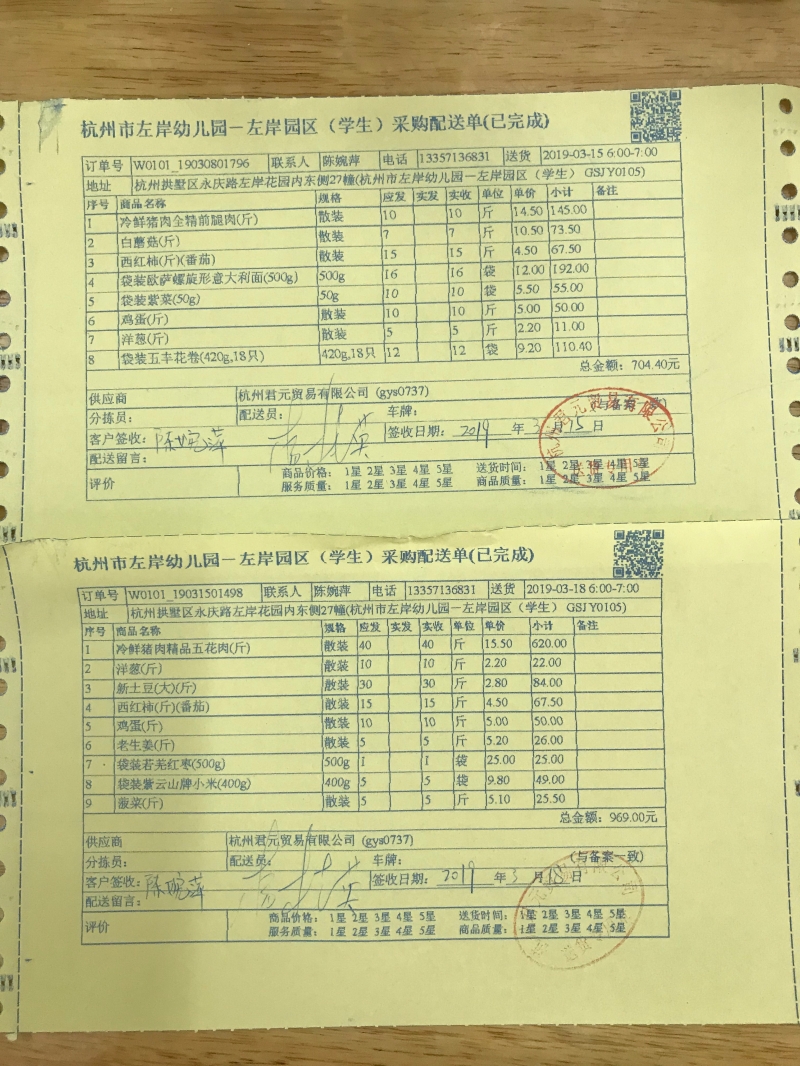 杭州市左岸幼儿园－左岸园区（学生）采购配送单(已完成)
订单号 W0101_19030801796 联系人 陈婉萍 电话 13357136831 送货 2019-03-15 6:00-7:00
地址 杭州拱墅区永庆路左岸花园内东侧27幢(杭州市左岸幼儿园－左岸园区（学生）GSJY0105)
序号 商品名称 规格 应发 实发 实收 单位 单价 小计 备注
1 冷鲜猪肉全精前腿肉(斤) 散装 10 10 斤 14.50 145.00
2 白蘑菇(斤) 散装 7 7 斤 10.50 73.50
3 西红柿(斤)(番茄) 散装 15 15 斤 4.50 67.50
4 袋装欧萨螺旋形意大利面(500g) 500g 16 16 袋 12.00 192.00
5 袋装紫菜(50g) 50g 10 10 袋 5.50 55.00
6 鸡蛋(斤) 散装 10 10 斤 5.00 50.00
7 洋葱(斤) 散装 5 5 斤 2.20 11.00
8 袋装五丰花卷(420g,18只) 420g,18只 12 12 袋 9.20 110.40
总金额：704.40元
供应商 杭州君元贸易有限公司 (gys0737)
分拣员： 配送员： 车牌： (与备案一致)
客户签收：陈婉萍 签收日期：2019 年 3 月 15 日
配送留言：
评价 商品价格： 1星 2星 3星 4星 5星 送货时间： 1星 2星 3星 4星 5星
服务质量： 1星 2星 3星 4星 5星 商品质量： 1星 2星 3星 4星 5星
杭州市左岸幼儿园－左岸园区（学生）采购配送单(已完成)
订单号 W0101_19031501498 联系人 陈婉萍 电话 13357136831 送货 2019-03-18 6:00-7:00
地址 杭州拱墅区永庆路左岸花园内东侧27幢(杭州市左岸幼儿园－左岸园区（学生）GSJY0105)
序号 商品名称 规格 应发 实发 实收 单位 单价 小计 备注
1 冷鲜猪肉精品五花肉(斤) 散装 40 40 斤 15.50 620.00
2 洋葱(斤) 散装 10 10 斤 2.20 22.00
3 新土豆(大)(斤) 散装 30 30 斤 2.80 84.00
4 西红柿(斤)(番茄) 散装 15 15 斤 4.50 67.50
5 鸡蛋(斤) 散装 10 10 斤 5.00 50.00
6 老生姜(斤) 散装 5 5 斤 5.20 26.00
7 袋装若羌红枣(500g) 500g 1 1 袋 25.00 25.00
8 袋装紫云山牌小米(400g) 400g 5 5 袋 9.80 49.00
9 菠菜(斤) 散装 5 5 斤 5.10 25.50
总金额：969.00元
供应商 杭州君元贸易有限公司 (gys0737)
分拣员： 配送员： 车牌： (与备案一致)
客户签收：陈婉萍 签收日期：2019 年 3 月 18 日
配送留言：
评价 商品价格： 1星 2星 3星 4星 5星 送货时间： 1星 2星 3星 4星 5星
服务质量： 1星 2星 3星 4星 5星 商品质量： 1星 2星 3星 4星 5星